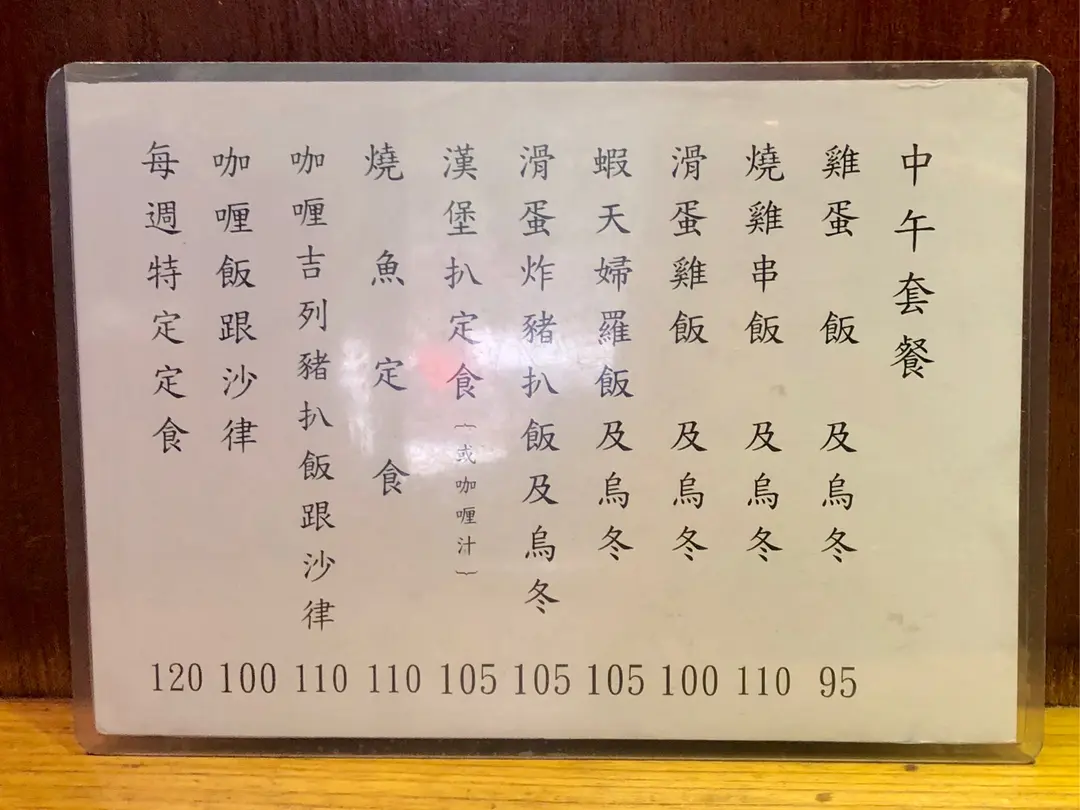 中午套餐
雞蛋飯及烏冬 95
燒雞串飯及烏冬 110
滑蛋雞飯及烏冬 100
蝦天婦羅飯及烏冬 105
滑蛋炸豬扒飯及烏冬 105
漢堡扒定食(或咖喱汁) 105
燒魚定食 110
咖喱吉列豬扒飯跟沙律 110
咖喱飯跟沙律 100
每週特定定食 120